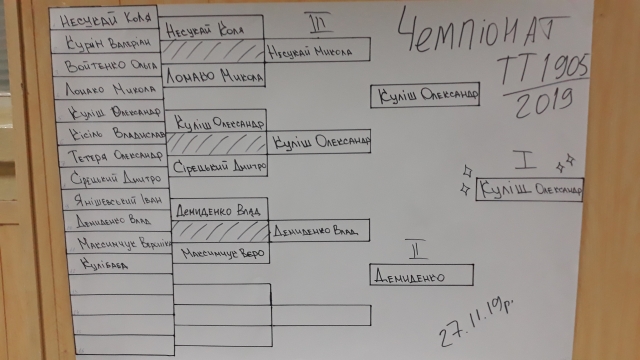 Несукай Коля
Курін Валерій
Войтенко Ольга
Ломако Микола
Куліш Олександр
Кісіль Владислав
Тетеря Олександр
Сірецький Дмитро
Янішевський Іван
Демиденко Влад
Максимчук Вероніка
Кулібаба
Несукай Коля
Ломако Микола
Куліш Олександр
Сірецький Дмитро
Демиденко Влад
Максимчук Веро
III
Несукай Микола
Куліш Олександр
Демиденко Влад
Куліш Олександр
II
Демиденко
Чемпіонат
ТТ 1905
2019
I
Куліш Олександр
27.11.19р.